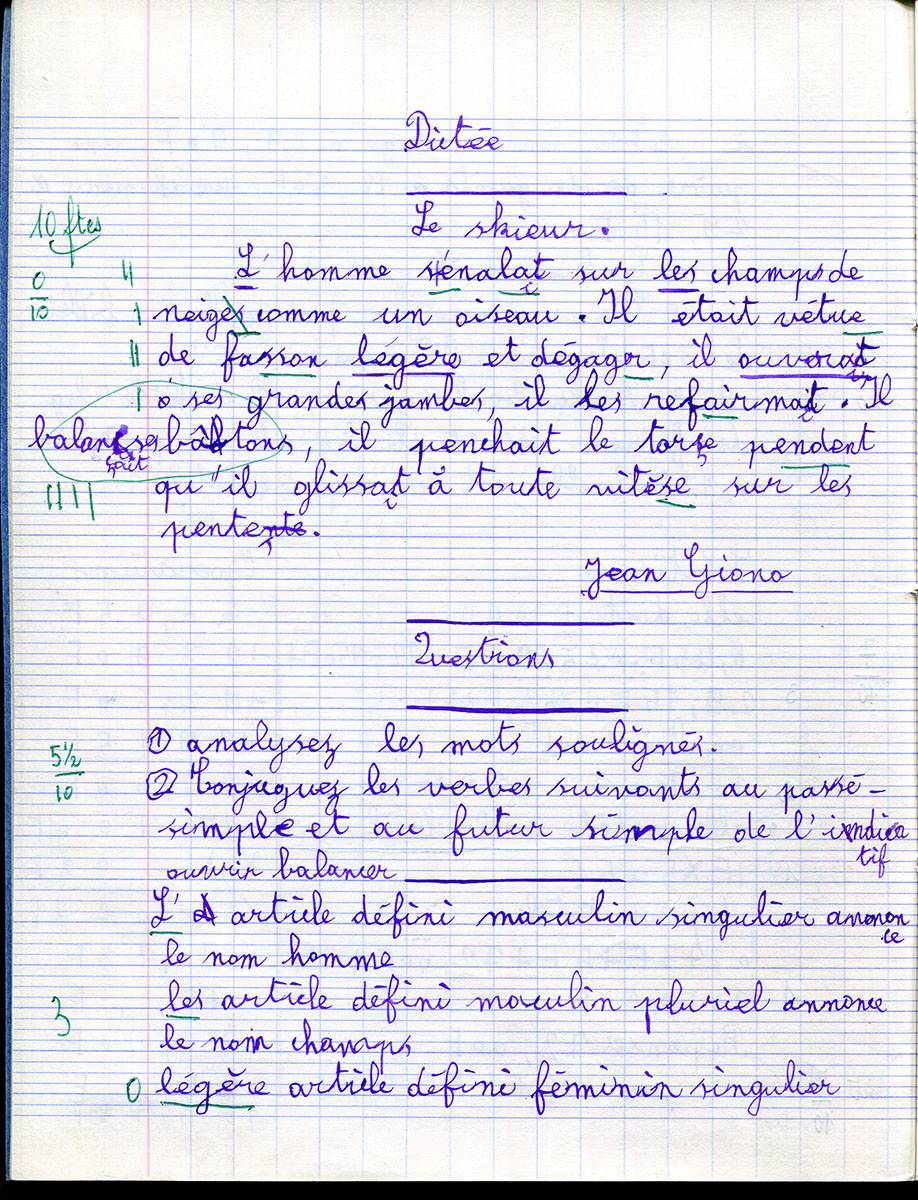 Dictée
10 ftes
Le skieur.
0/10 L'homme s'énalait sur les champs de
neiges comme un oiseau. Il était vètue
de fasson légère et dégager, il ouvrait
ses grandes jambes, il les refairmait. Il
balançait ses bâtons, il penchait le torse pendent
qu'il glissait à toute vitèse sur les
pentes.
Jean Giono
Questions
5 1/2 / 10
① analysez les mots soulignés.
② Conjuguez les verbes suivants au passé-
simple et au futur simple de l'indica
tif
ouvrir balancer
L' article défini masculin singulier annon
ce
le nom homme
les article défini masculin pluriel annonce
3
le nom champs
0 légère article défini féminin singulier